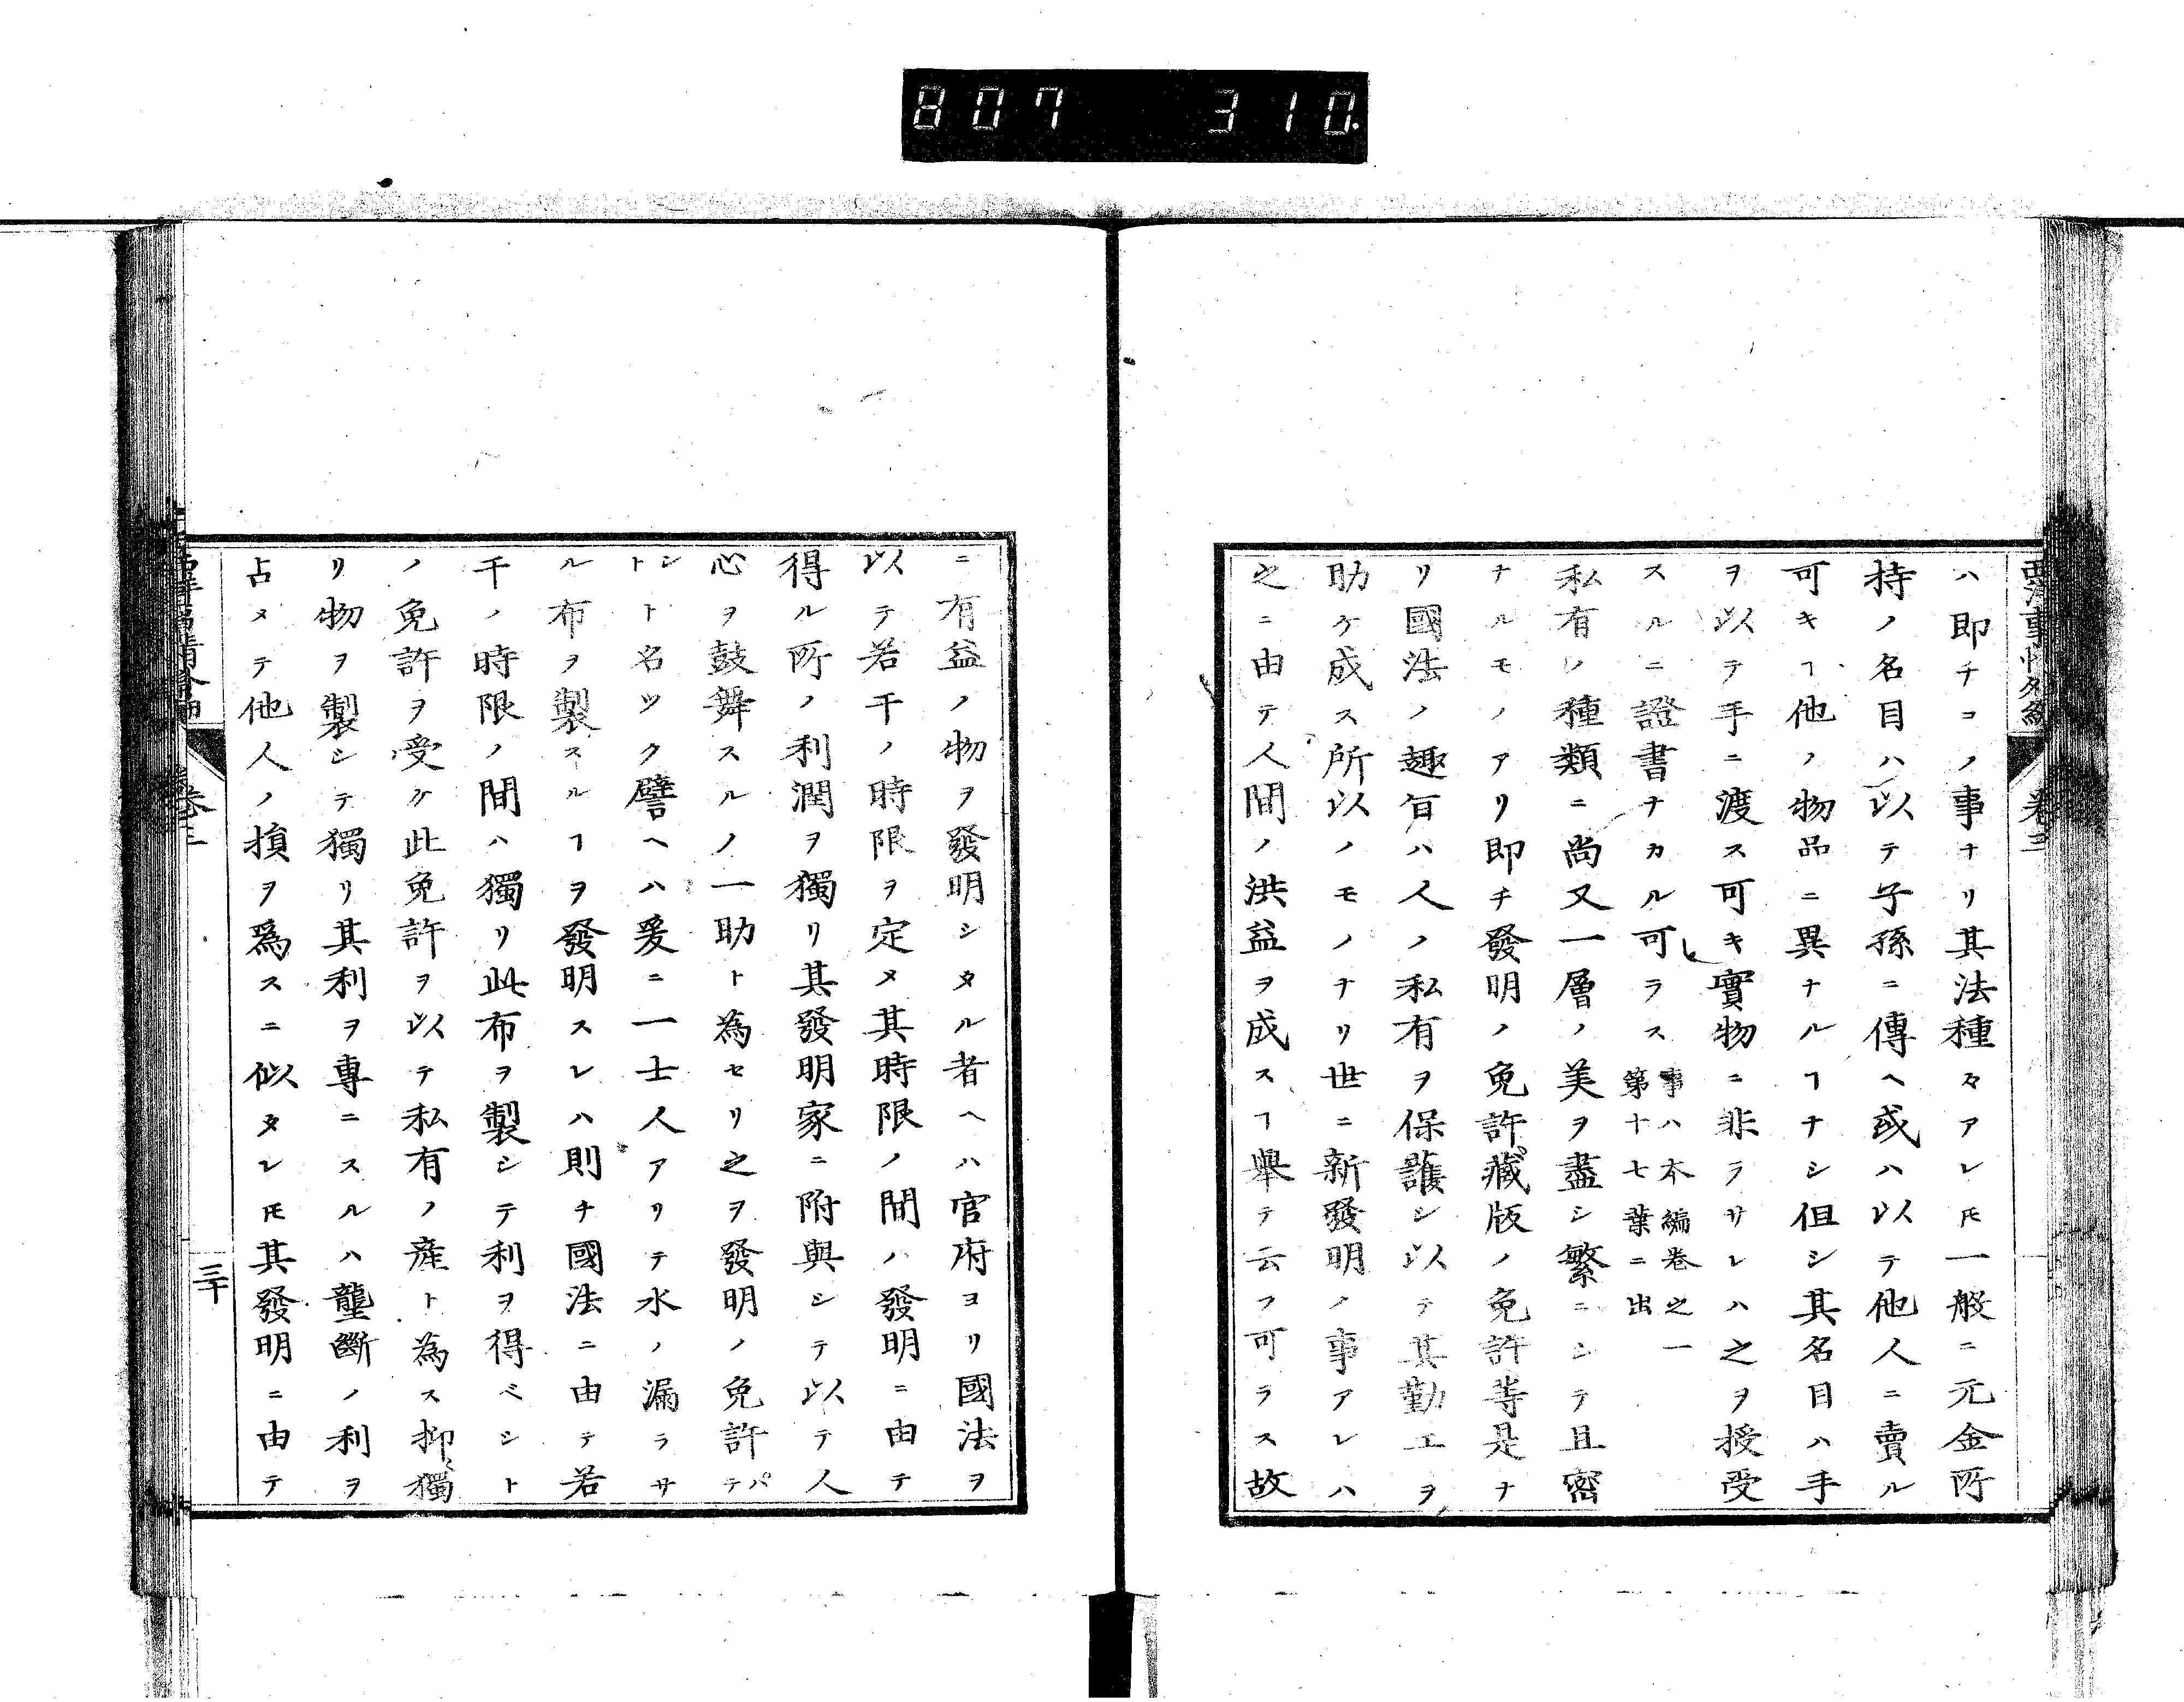 807 310.
西洋事情外編 卷三
ハ即チコノ事ナリ其法種々アレㇳモ一般ニ元金所
持ノ名目ハ以テ子孫ニ傳ヘ或ハ以テ他人ニ賣ル
可キヿ他ノ物品ニ異ナルヿナシ但シ其名目ハ手
ヲ以テ手ニ渡ス可キ實物ニ非ラサレハ之ヲ授受
スルニ證書ナカル可ラス事ハ本編卷之一第十七葉ニ出
私有ノ種類ニ尚又一層ノ美ヲ盡シ繁ニシテ且密
ナルモノアリ即チ發明ノ免許藏版ノ免許等是ナ
リ國法ノ趣旨ハ人ノ私有ヲ保護シ以テ其勤工ヲ
助ケ成ス所以ノモノナリ世ニ新發明ノ事アレハ
之ニ由テ人間ノ洪益ヲ成スヿ舉テ云フ可ラス故
ニ有益ノ物ヲ發明シタル者ヘハ官府ヨリ國法ヲ
以テ若干ノ時限ヲ定メ其時限ノ間ハ發明ニ由テ
得ル所ノ利潤ヲ獨リ其發明家ニ附與シテ以テ人
心ヲ鼓舞スルノ一助ト為セリ之ヲ發明ノ免許パテ
ントト名ツク譬ヘハ爰ニ一士人アリテ水ノ漏ラサ
ル布ヲ製スルヿヲ發明スレハ則チ國法ニ由テ若
干ノ時限ノ間ハ獨リ此布ヲ製シテ利ヲ得ベシト
ノ免許ヲ受ケ此免許ヲ以テ私有ノ産ト為ス抑〻獨
リ物ヲ製シテ獨リ其利ヲ專ニスルハ壟斷ノ利ヲ
占メテ他人ノ損ヲ爲スニ似タレㇳモ其發明ニ由テ
卷三
三十